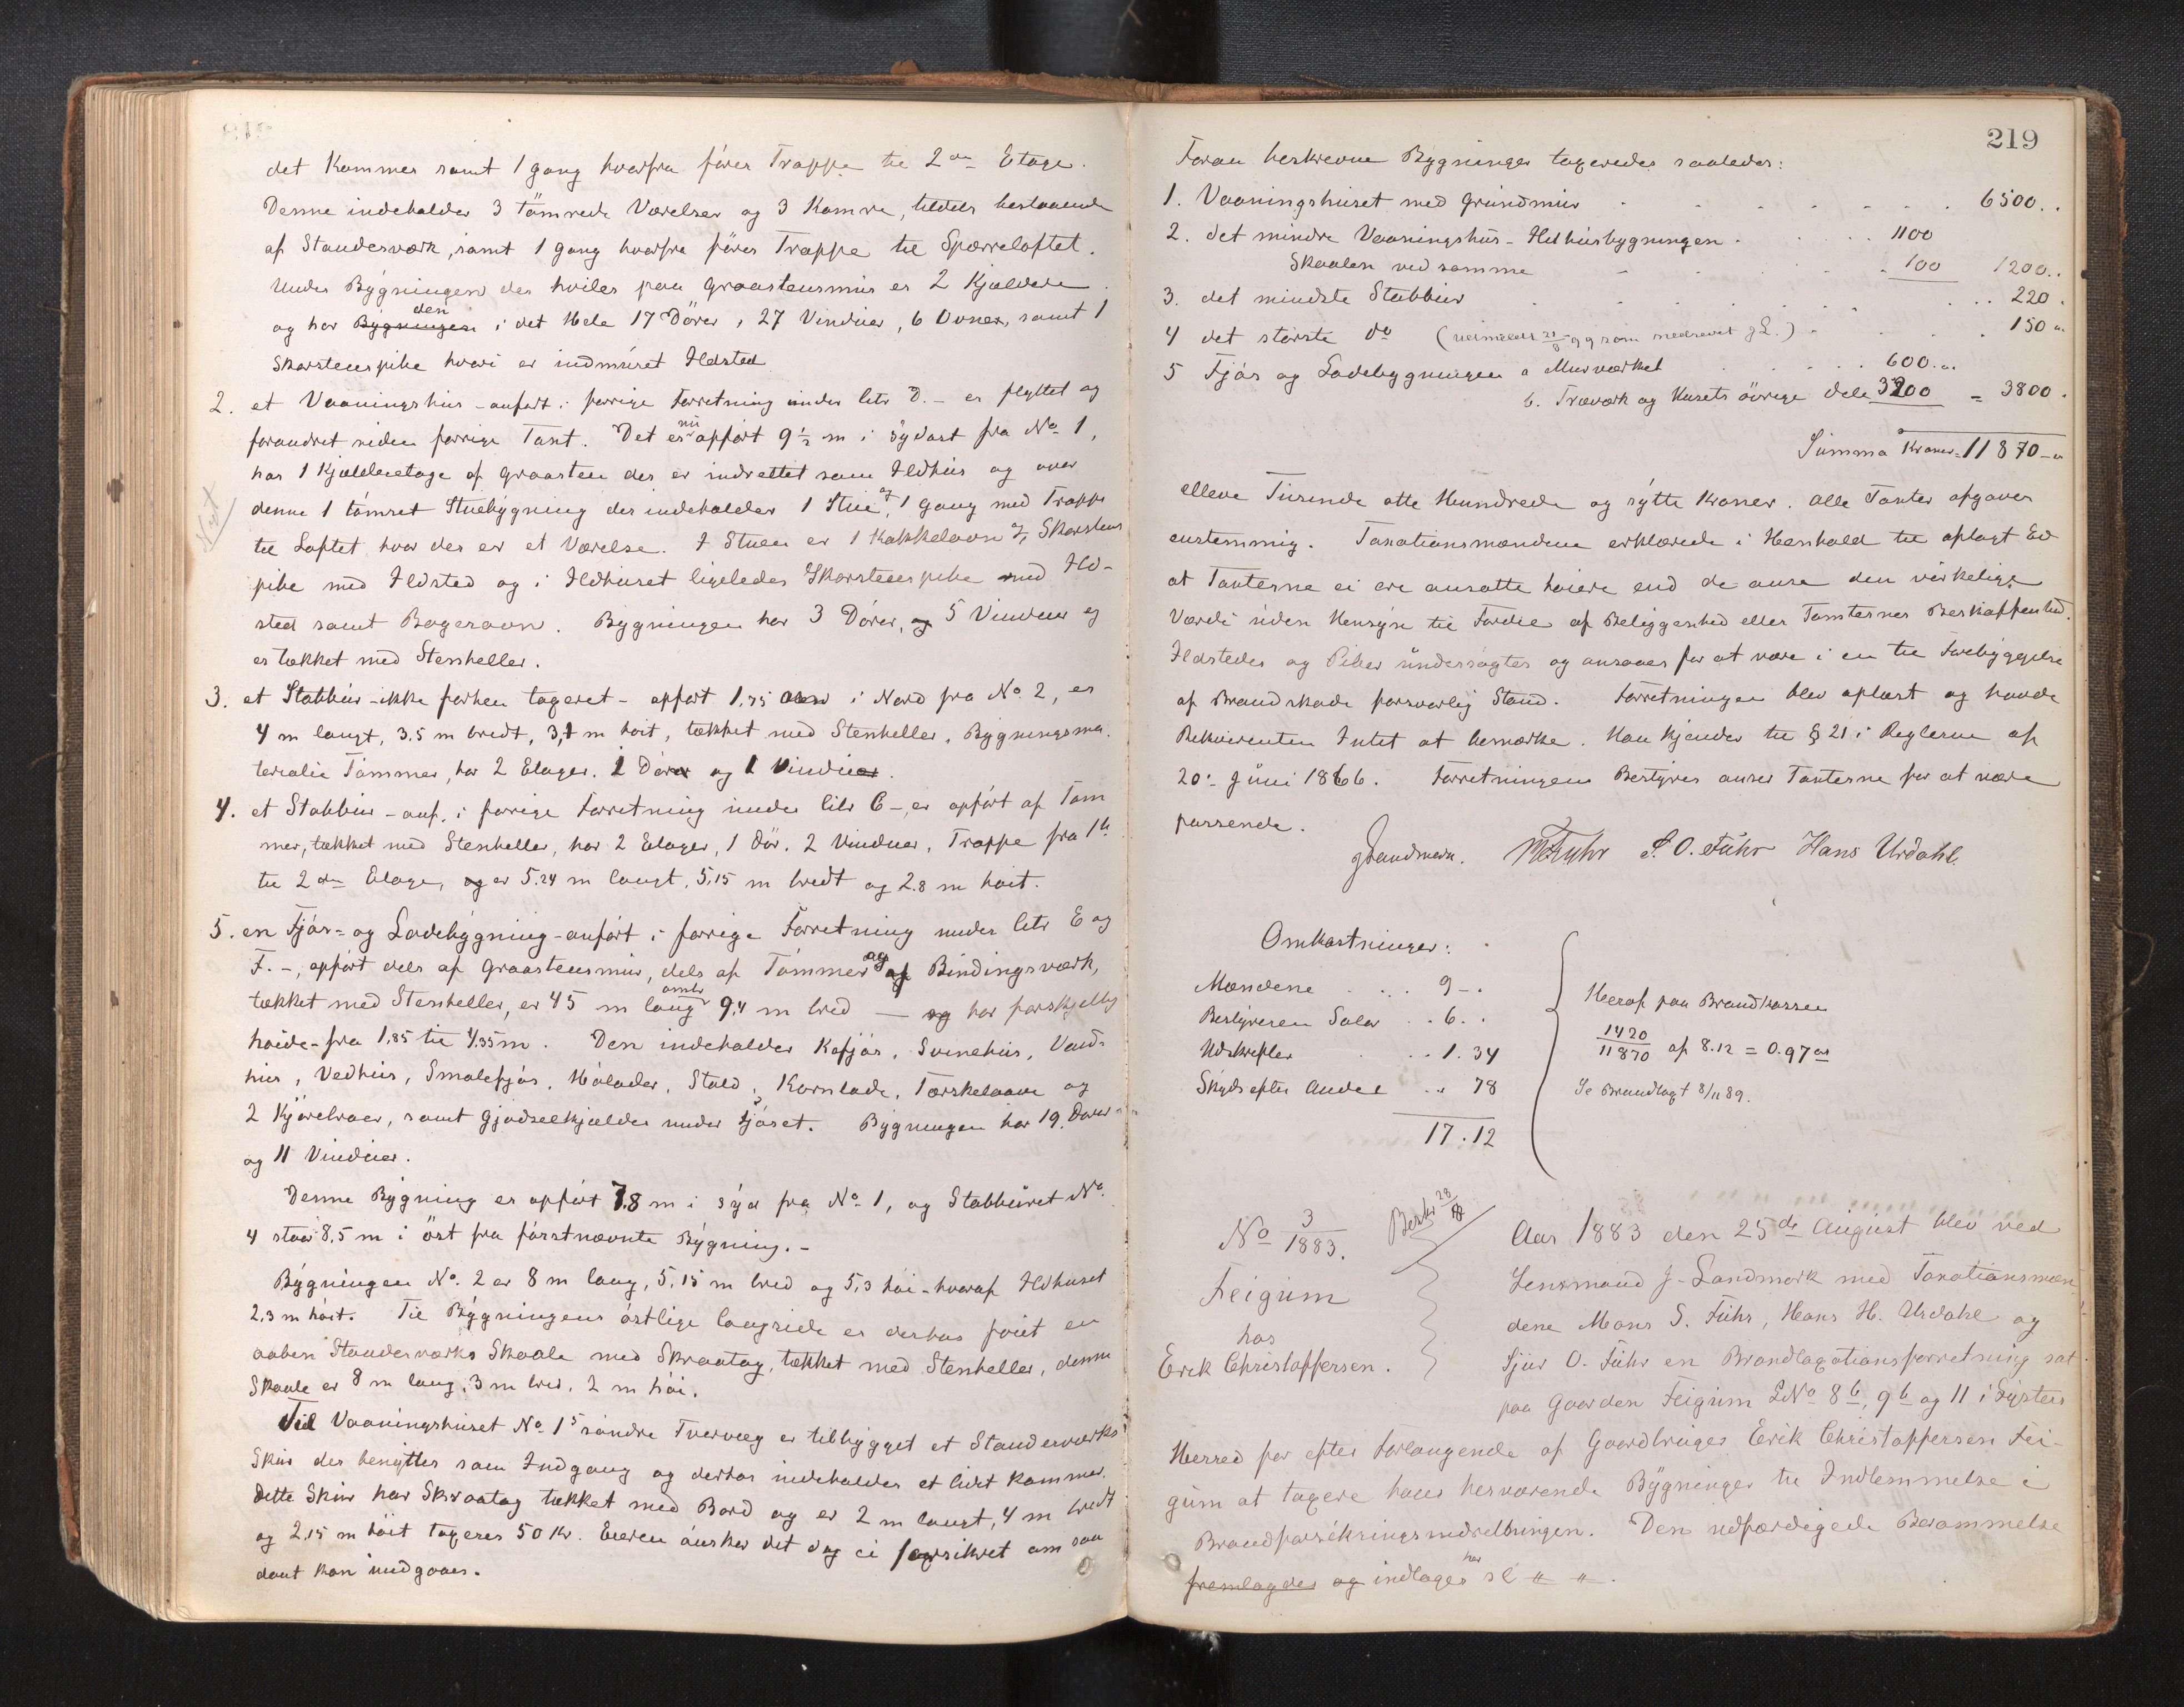 det Kammer samt 1 gang hvorfra fører Trappe til 2den Etage.
Denne indeholder 3 tömrede Værelser og 3 Kamre, tildels bestaaende
af Standerværk, samt 1 gang hvorfra fører Trappe til Sperreloftet.
Under Bygningen der hviler paa graastensmur er 2 Kjældere
og har Bygningen den i det Hele 17 Dörer, 27 Vinduer, 6 Ovner, samt 1
Skorstenspibe hvori er indmuret Ildsted
2. et Vaaningshus - anført i forrige Forretning under litr D. - er flyttet og
forandret siden forrige Taxt. Det er nu opført 9½ m i sydost fra No 1,
har 1 Kjælderetage af graasten der er indrettet som Ildhus og over
denne 1 tömret Stuebygning der indeholder 1 Stue og 1 gang med Trappe
til Loftet hvor der er et Værelse. I Stuen er 1 Kakkelovn & Skorstens
pibe med Ildsted og i Ildhuset ligeledes Skorstenspibe med Ild-
sted samt Bagerovn. Bygningen har 3 Dörer, og 5 Vinduer og
er tækket med Stenheller.
3. et Stabbur - ikke forhen taxeret - opført 1,75 m i Nord fra No 2, er
4 m langt, 3.5 m bredt, 3,1 m höit, tækket med Stenheller, Bygningsma-
terialie Tömmer, har 2 Etager. 1 Dör og 1 Vindue.
4. et Stabbur - anf. i forrige Forretning under litr C -, er opført af Töm
mer, tækket med Stenheller, har 2 Etager, 1 Dör. 2 Vinduer, Trappe fra 1te
til 2den Etage, og er 5.24 m langt, 5,15 m bredt og 2.8 m höit.
5. en Fjös- og Ladebygning - anført i forrige Forretning under litr E og
F. -, opført dels af graastensmur, dels af Tömmer og af Bindingsværk,
tækket med Stenheller, er 45 m lang omtr 9,4 m bred — og har forskjellig
høide - fra 1,85 til 4,35 m. Den indeholder Kofjös, Svinehus, Vand-
hus, Vedhus, Smalefjös, Hölader, Stald, Kornlade, Tærskelaave og
2 Kjörebroer, samt Gjødselkjælder under Fjöset. Bygningen har 19 Dörer
og 11 Vinduer.
Denne Bygning er opført 7.8 m i syd fra No 1, og Stabburet No
4 staar 8,5 m i öst fra förstnævnte Bygning. -
Bygningen No. 2 er 8 m lang, 5,15 m bred og 5,3 höi - hvoraf Ildhuset
2,3 m höit. Til Bygningens östlige langside er derhos föiet en
aaben Standerværks Skaale med Skraatag, tækket med Stenheller, denne
Skaale er 8 m lang, 3 m bred, 2 m höi.
Til Vaaningshuset No 1s söndre Tvervæg er tilbygget et Standerværks
Skur der benyttes som Indgang og derhos indeholder et lidet Kammer.
Dette Skur har Skraatag tækket med Bord og er 2 m langt, 4 m bredt
og 2,15 m höit taxeres 50 Kr. Eieren önsker det dog ei forsikret om saa
dant kan undgaaes.
219
Foran beskrevne Bygninger taxeredes saaledes:
1. Vaaningshuset med grundmur 6500..
2. det mindre Vaaningshus - Ildhusbygningen 1100
Skaalen ved samme 100 1200..
3. det mindste Stabbur 220.
4 det störste do 150 "
5 Fjös og Ladebygningen a Murværket 600."
b. Træværk og Husets övrige Dele 3200 = 3800.
Summa Kroner = 11870 - "
elleve Tusinde otte Hundrede og sytte Kroner. Alle Taxter afgaves
enstemmig. Taxationsmændene erklærede i Henhold til aflagt Ed
at Taxterne ei ere ansatte høiere end de anse den virkelige
Værdi uden Hensyn til Fordel af Beliggenhed eller Tomternes Beskaffenhed.
Ildsteder og Piber undersøgtes og ansaaes for at være i en til Forebyggelse
af Brandskade forsvarlig Stand. Forretningen blev oplæst og havde
Rekvirenten Intet at bemærke. Han kjender til § 21 i Reglerne af
20de Juni 1866. Forretningens Bestyrer anser Taxterne for at være
passende.
JLandmark. MSFuhr S. O. Fuhr Hans Urdahl.
Omkostninger:
Mændene 9 - .
Bestyreren Salar 6..
Udskrifter 1.34
Skyds efter Andel " 78
17.12
Heraf paa Brandkassen
1420/11870 af 8.12 = 0.97 øre
Se Brandtaxt 8/11 89.
No 3/1883.
Feigum
hos
Erik Christoffersen.
Aar 1883 den 25de August blev ved
Lensmand J. Landmark med Taxationsmæn-
dene Mons S. Fuhr, Hans H. Urdahl og
Sjur O. Fuhr en Brandtaxationsforretning sat
paa Gaarden Feigum LNo 8b, 9b og 11 i Lyster
Herred for efter Forlangende af Gaardbruger Erik Christoffersen Fei-
gum at taxere hans herværende Bygninger til Indlemmelse i
Brandforsikringsindretningen. Den udfærdigede Berammelse
fremlagdes og indtages her sl " " .